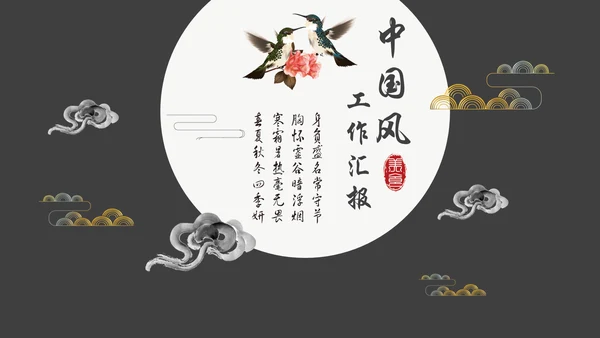 中国风
工作汇报
身负盛名常守节
胸怀虚谷暗浮烟
寒霜暑热毫无畏
春夏秋冬四季妍